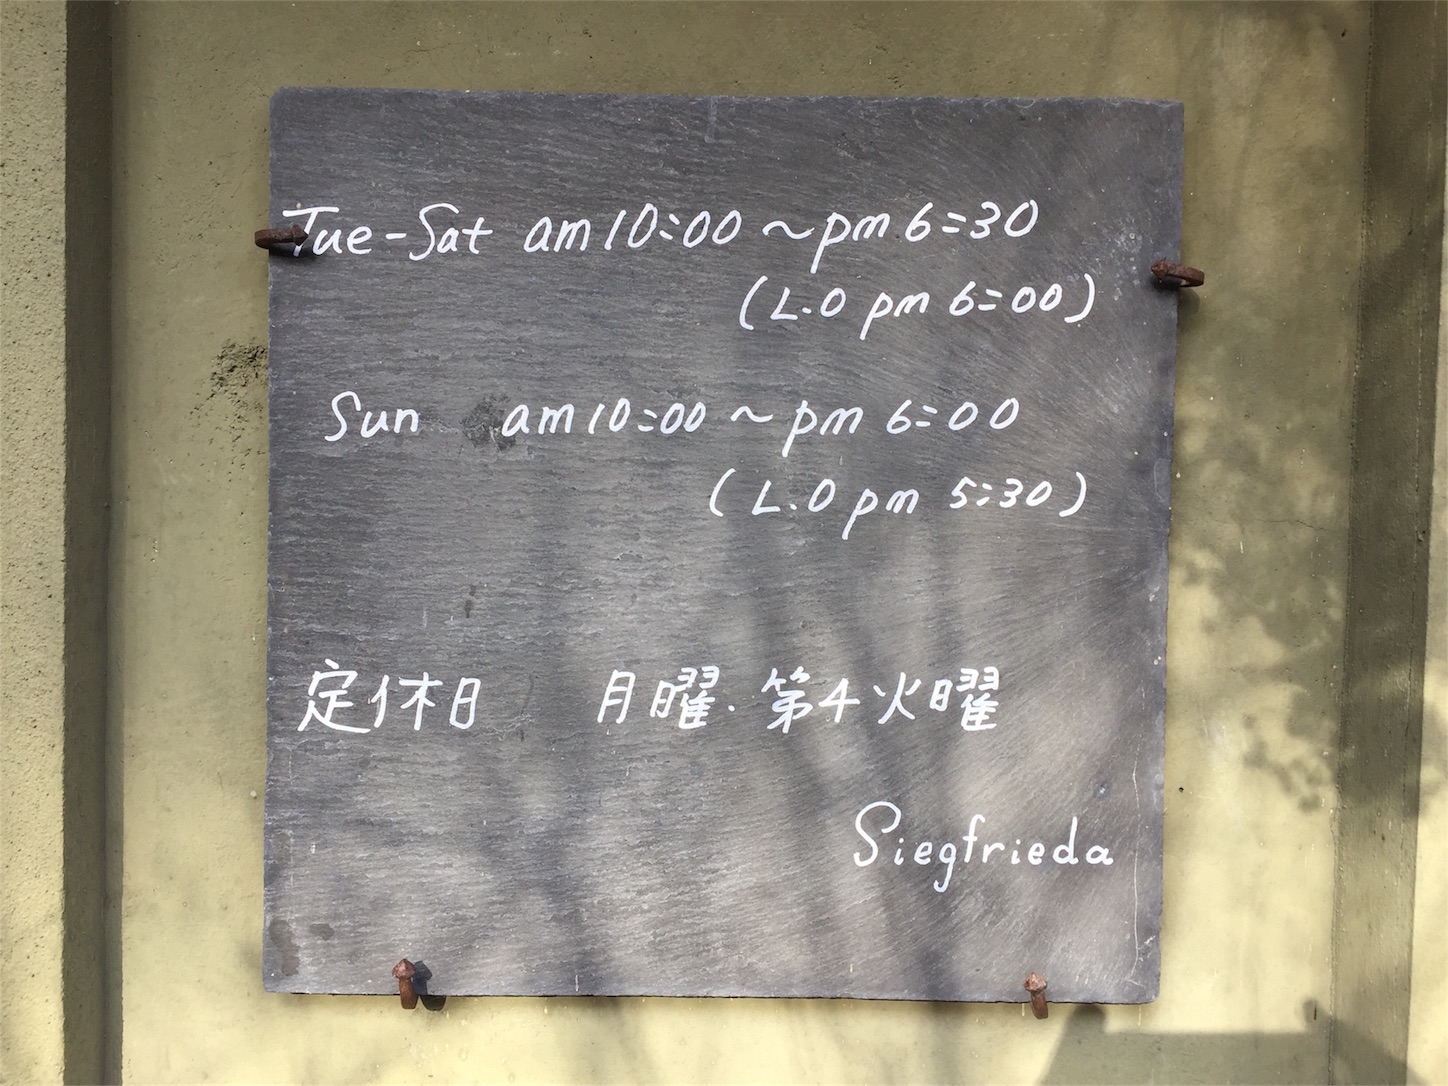 Tue-Sat am10:00~pm 6:30
(L.O pm 6:00)
Sun am10:00~pm 6:00
(L.O pm 5:30)
定休日 月曜・第4火曜
Siegfrieda